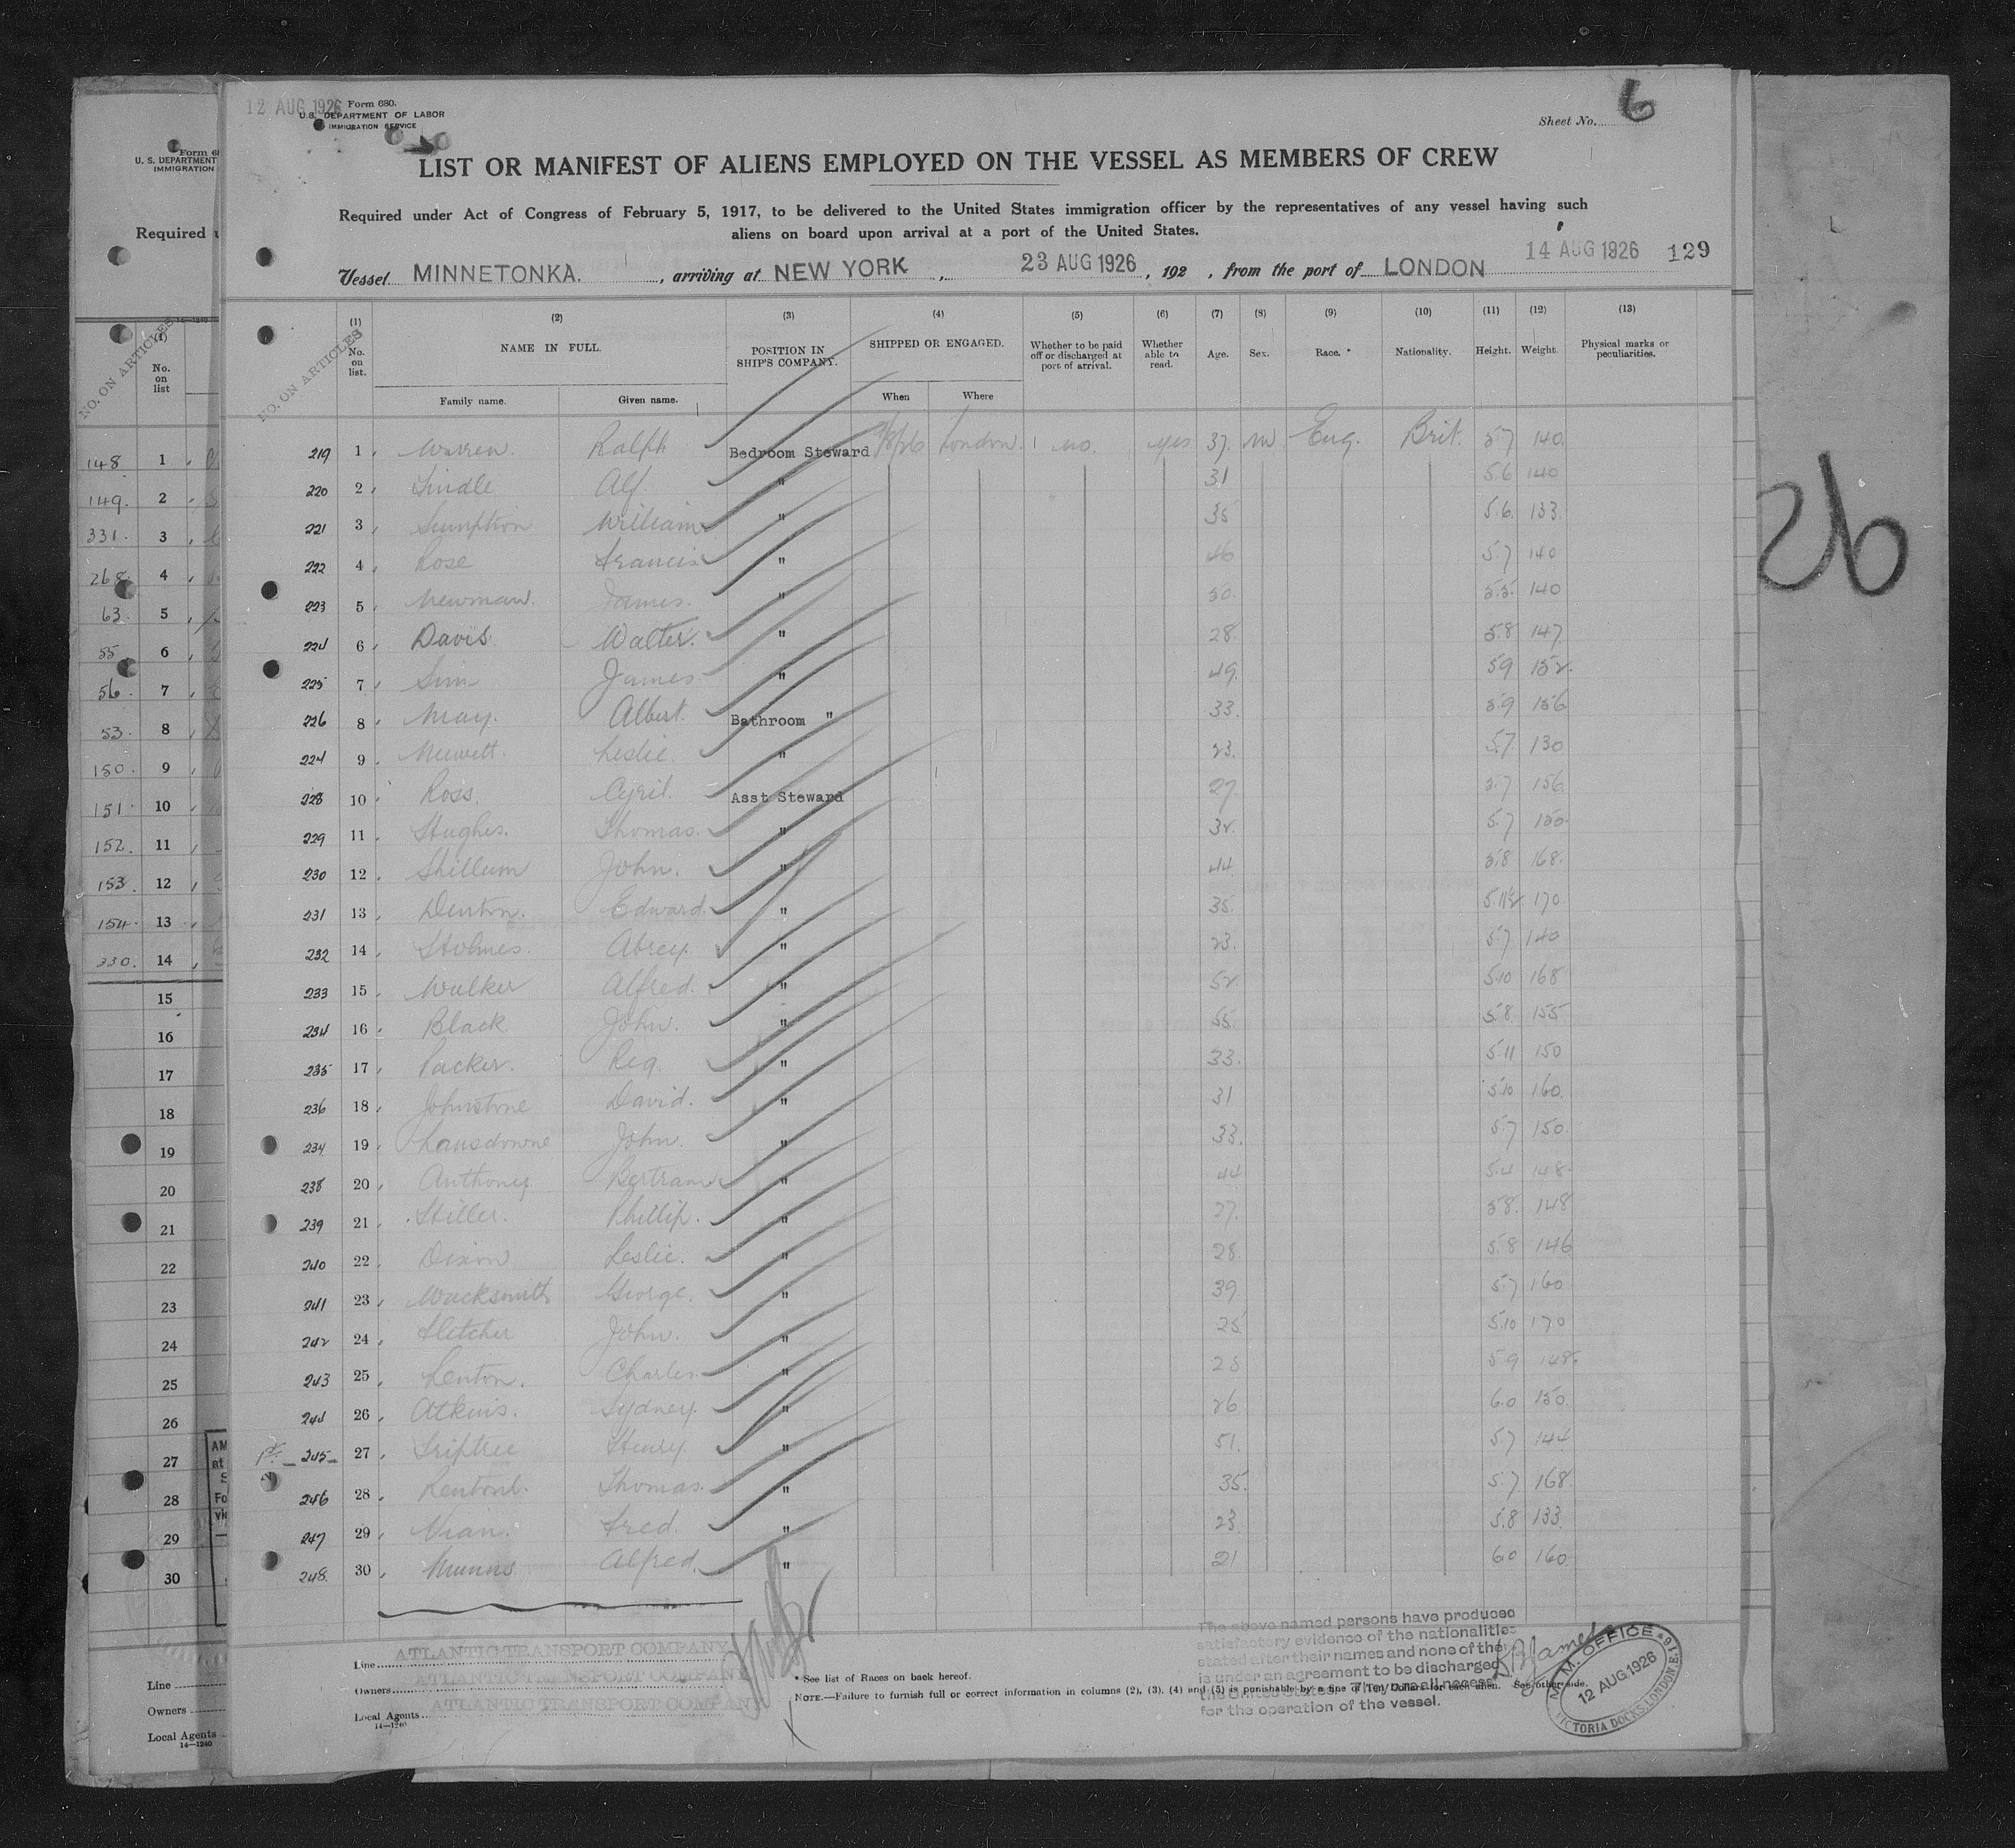 12 AUG 1926
Form 680.
U.S. DEPARTMENT OF LABOR
IMMIGRATION SERVICE
Sheet No. 6
LIST OR MANIFEST OF ALIENS EMPLOYED ON THE VESSEL AS MEMBERS OF CREW
Required under Act of Congress of February 5, 1917, to be delivered to the United States immigration officer by the representatives of any vessel having such
aliens on board upon arrival at a port of the United States.
Vessel MINNETONKA. , arriving at NEW YORK , 23 AUG 1926 , 192 , from the port of LONDON 14 AUG 1926 129
NO. ON ARTICLES
(1) No. on list.
(2) NAME IN FULL.
Family name. Given name.
(3) POSITION IN SHIP'S COMPANY.
(4) SHIPPED OR ENGAGED.
When Where
(5) Whether to be paid off or discharged at port of arrival.
(6) Whether able to read.
(7) Age.
(8) Sex.
(9) Race. *
(10) Nationality.
(11) Height.
(12) Weight.
(13) Physical marks or peculiarities.
219 1 Warren. Ralph Bedroom Steward London. no. yes 37. m Eng. Brit. 5.7 140
220 2 Alf. " 31 5.6 140
221 3 Sumption William " 35 5.6. 133
222 4 Rose Francis " 46 5.7 140
223 5 Newman. James. " 5.5. 140
224 6 Davis. Walter. " 28 5.8 147
225 7 Sim James. " 49. 5.9 152.
226 8 May. Albert. Bathroom " 33. 5.9 156
227 9 Leslie. " 23. 5.7 130
228 10 Ross. Cyril. Asst Steward 27 5.7 156
229 11 Hughes. Thomas. " 32. 5.7
230 12 Shillum John. " 44. 5.8 168.
231 13 Denton. Edward. " 35. 5.11½ 170
232 14 Holmes. Abrey. " 23. 5.7 140
233 15 Walker Alfred. " 52. 5.10 168
234 16 Black. John. " 55. 5.8. 155
235 17 Packer. Reg. " 33. 5.11 150
236 18 Johnstone David. " 31 5.10 160.
237 19 Lansdowne John. " 33. 5.7 150.
238 20 Anthoney. Bertram " 44 5.4 148.
239 21 Hiller. Phillip. " 27. 5.8. 148
240 22 Dixon Leslie. " 28 5.8 146
241 23 Wacksmith George. " 39 5.7 160
242 24 Fletcher John. " 25 5.10 170
243 25 Lenton. Charles. " 5.9 148.
244 26 Atkins. Sydney. " 26 6.0 150
245 27 Henry. " 51. 5.7 144
246 28 Thomas. " 35. 5.7 168.
247 29 Vian. Fred. " 23. 5.8 133
248. 30 Munns Alfred. " 21 6.0 160.
Line ATLANTIC TRANSPORT COMPANY
Owners ATLANTIC TRANSPORT COMPANY
Local Agents ATLANTIC TRANSPORT COMPANY
14—1240
* See list of Races on back hereof.
NOTE.—Failure to furnish full or correct information in columns (2), (3), (4) and (5) is punishable by a fine of Ten Dollars for each alien. See other side.
The above named persons have produced
satisfactory evidence of the nationalities
stated after their names and none of the
is under an agreement to be discharged
the United States. They are all necess
for the operation of the vessel.
M. M. OFFICE
12 AUG 1926
VICTORIA DOCKS, LONDON E.16
26
U. S. DEPARTMENT
IMMIGRATION
Required
NO. ON ARTICLES
No. on list
148 1
149. 2
331. 3
268. 4
63. 5
55 6
56. 7
53. 8
150. 9
151. 10
152. 11
153. 12
154. 13
330. 14
15
16
17
18
19
20
21
22
23
24
25
26
27
28
29
30
Line
Owners
Local Agents
14—1240